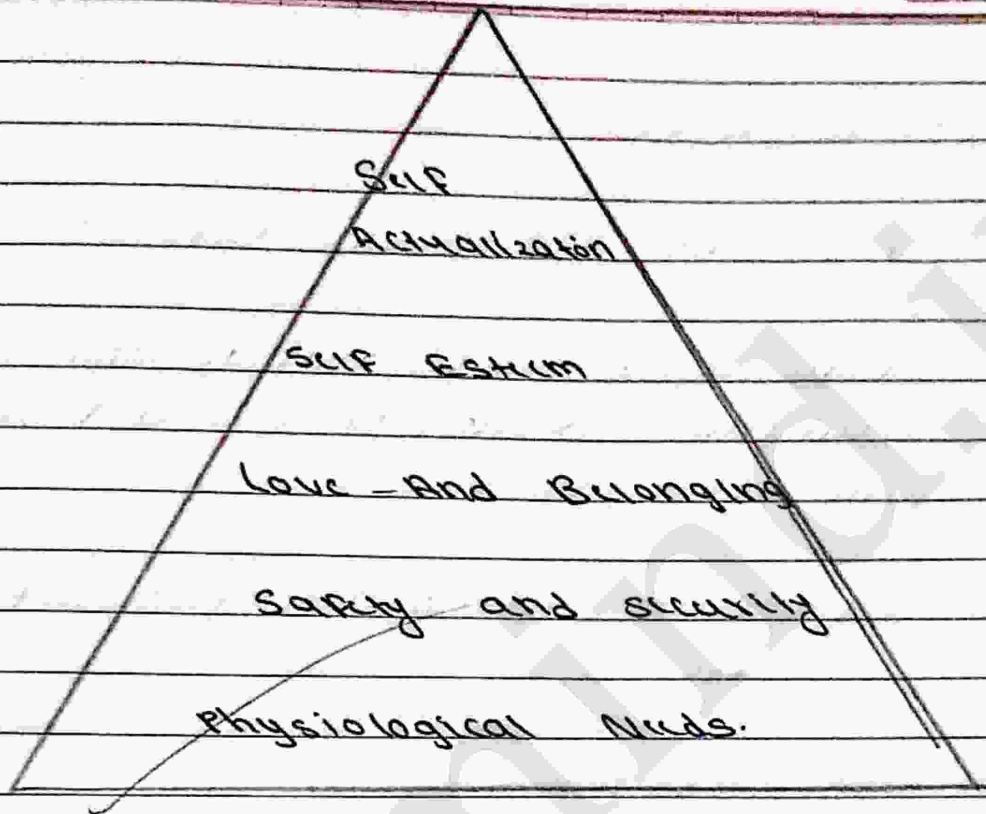 Self
Actualization
Self Esteem
Love - And Belonging
Safety and security
Physiological Needs.